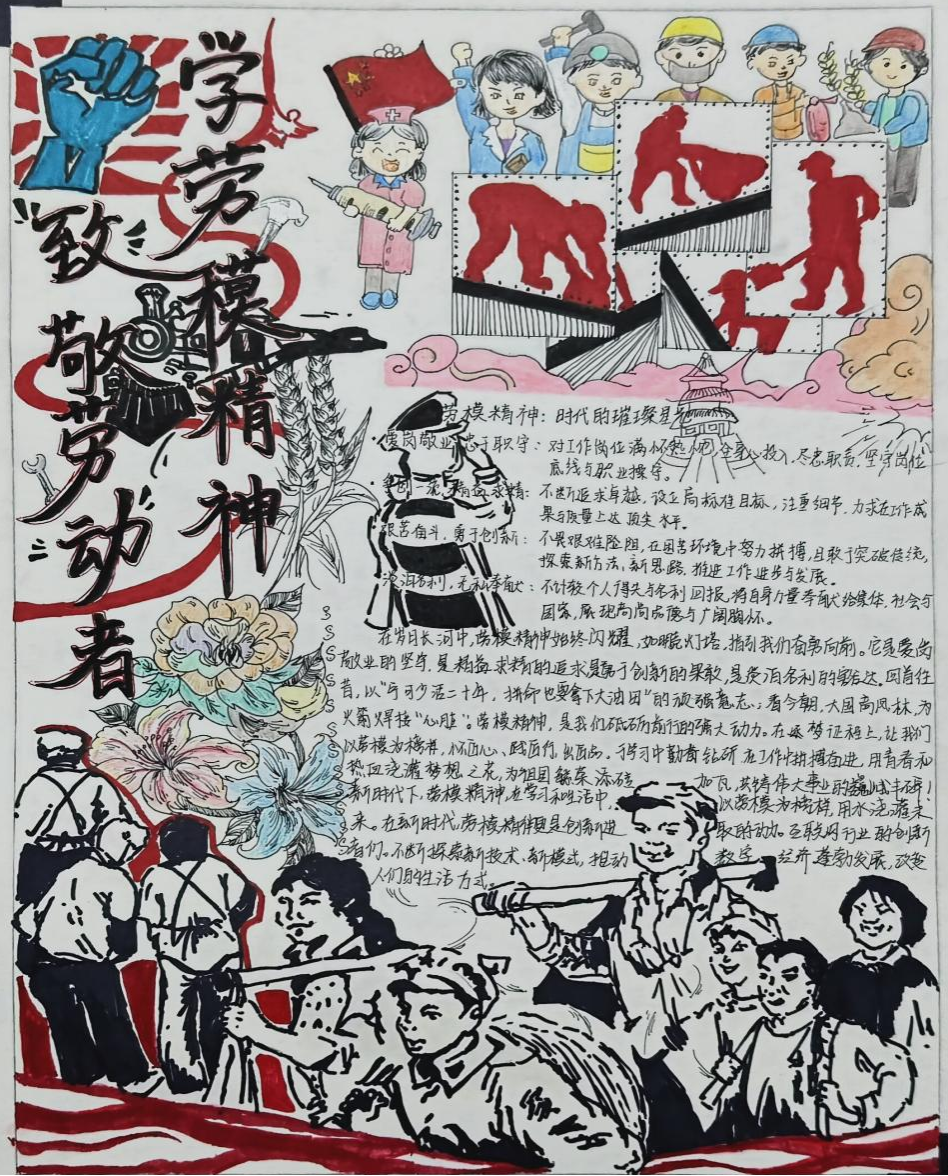 学劳模精神
致敬劳动者
劳模精神：时代的璀璨星
爱岗敬业 忠于职守：对工作岗位满怀热忱，全身心投入，尽忠职责，坚守岗位
底线与职业操守。
争创一流，精益求精：不断追求卓越，设立高标准目标，注重细节，力求在工作成
果与质量上达顶尖水平。
艰苦奋斗，勇于创新：不畏艰难险阻，在困苦环境中努力拼搏，且敢于突破传统，
探索新方法、新思路，推进工作进步与发展。
淡泊名利，无私奉献：不计较个人得失与名利回报，将自身力量奉献给集体，社会与
国家，展现高尚品德与广阔胸怀。
在岁月长河中，劳模精神始终闪耀，如璀灯塔，指引我们奋勇向前。它是爱岗
敬业的坚守，是精益求精的追求是勇于创新的果敢，是淡泊名利的豁达。回首往
昔，以“宁可少活二十年，拼命也要拿下大油田”的顽强意志；看今朝，大国高凤林，为
火箭焊接“心脏”。劳模精神，是我们砥砺前行的强大动力。在逐梦征程上，让我们
以劳模为榜样，怀匠心、践匠行、出匠品。于学习中勤奋钻研 在工作中拼搏奋进，用青春和
热血浇灌梦想之花，为祖国繁荣添砖加瓦，共铸伟大事业的巍峨丰碑！
新时代下，劳模精神，在学习和生活中，以劳模为榜样，用水浇灌未
来。在新时代，劳模精神更是创新进取的动力。互联网行业的创新
者们。不断探索新技术、新模式，推动数字经济蓬勃发展，改变
人们的生活方式。